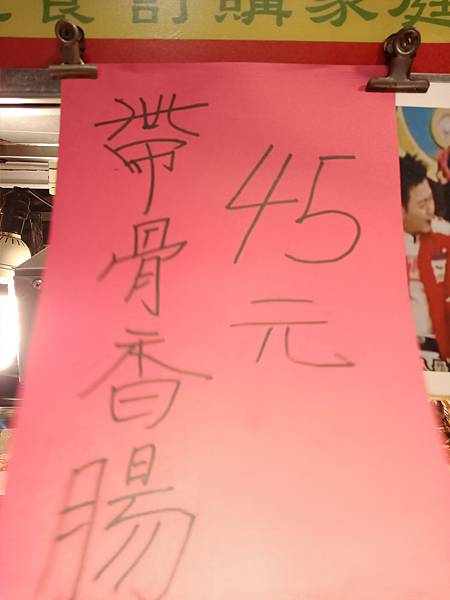 食訂購家庭
帶骨香腸
45元